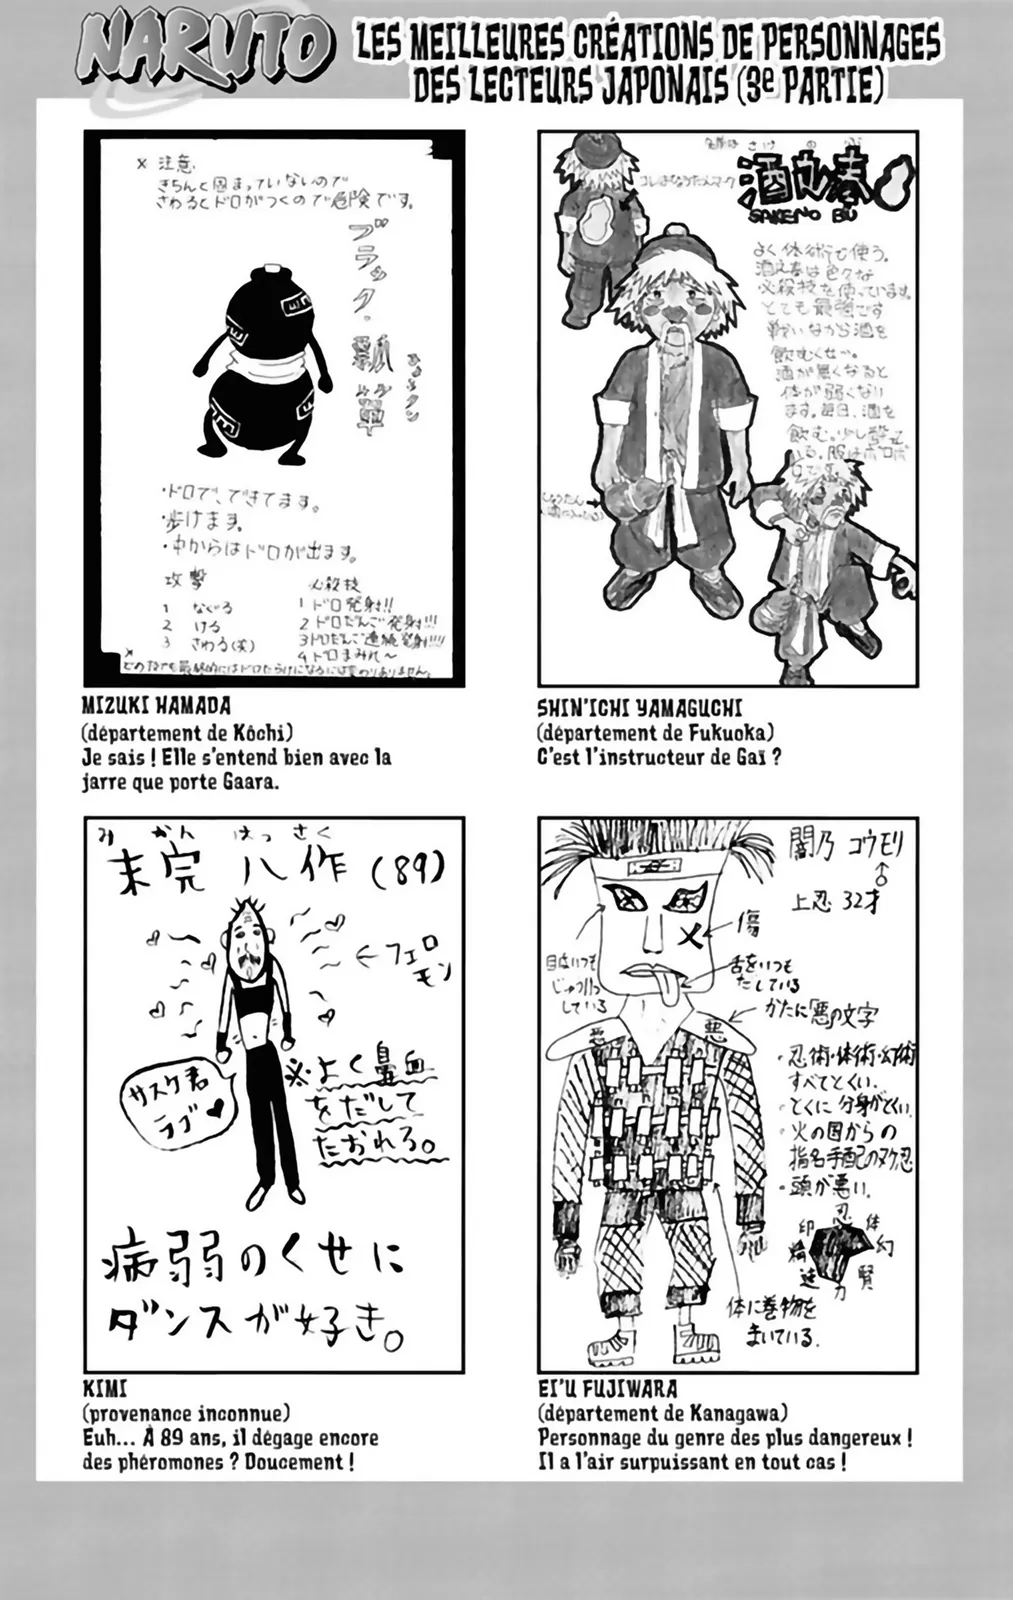 NARUTO
LES MEILLEURES CRÉATIONS DE PERSONNAGES
DES LECTEURS JAPONAIS (3e PARTIE)
× 注意
きちんと固まっていないので
さわるとドロがつくので危険です。
ブラック・瓢箪
・ドロでできてます。
・歩けます。
・中からはドロが出ます。
攻撃
1 なぐる
2 ける
3 さわる(笑)
必殺技
1 ドロ発射!!
2 ドロだんご発射!!!
3 ドロだんご連続発射!!!!
4 ドロまみれ〜
MIZUKI HAMADA
(département de Kôchi)
Je sais ! Elle s'entend bien avec la
jarre que porte Gaara.
SAKENO BU
よく体術で使う。
必殺技を使っています。
とても最強です
戦いながら酒を
飲むくせ〜。
酒が無くなると
体が弱くない
ます。毎日、酒を
飲む。少し酔って
いる。服はボロボ
ロです。
SHIN'ICHI YAMAGUCHI
(département de Fukuoka)
C'est l'instructeur de Gaï ?
み かん はっ さく
未完 八作 (89)
←フェロ
モン
サスケ君
ラブ♥
※よく鼻血
をだして
たおれる。
病弱のくせに
ダンスが好き。
KIMI
(provenance inconnue)
Euh... À 89 ans, il dégage encore
des phéromones ? Doucement !
闇乃 コウモリ
♂
上忍 32才
傷
舌をいつも
だしている
目はいつも
じゅうけつ
している
かたに「悪」の文字
悪
悪
・忍術・体術・幻術
すべてとくい。
・とくに分身がとくい。
・火の国からの
指名手配のヌケ忍
・頭が悪い。
忍
体
幻
賢
力
速
印
体に巻物を
まいている。
EI'U FUJIWARA
(département de Kanagawa)
Personnage du genre des plus dangereux !
Il a l'air surpuissant en tout cas !